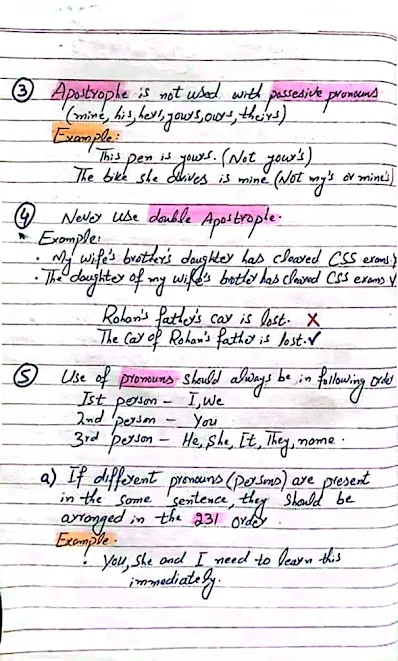 ③ Apostrophe is not used with possesive pronouns
(mine, his, hers, yours, ours, theirs)
Example:
This pen is yours. (Not your's)
The bike she drives is mine (Not my's or mine's)
④ Never use double Apostrophe.
* Example:
· My wife's brother's daughter has cleared CSS exams.
· The daughter of my wife's brother has cleared CSS exams ✓
Rohan's father's car is lost. ✗
The car of Rohan's father is lost. ✓
⑤ Use of pronouns should always be in following order
Ist person – I, We
2nd person – You
3rd person – He, She, It, They, name.
a) If different pronouns (persons) are present
in the same sentence, they should be
arranged in the 231 order.
Example.
· You, She and I need to learn this
immediately.